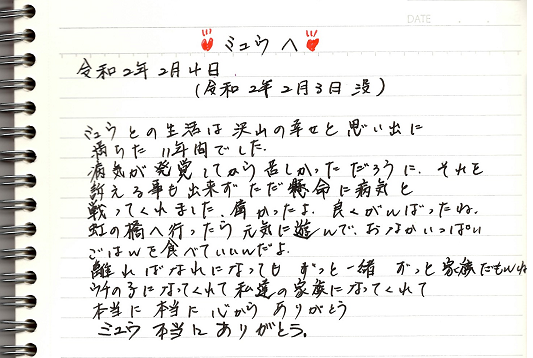 DATE
ミュウへ
令和2年2月4日
(令和2年2月3日 没)
ミュウとの生活は沢山の幸せと思い出に
満ちた11年間でした。
病気が発覚してから苦しかっただろうに、それを
訴える事も出来ずただ懸命に病気と
戦ってくれました、偉かったよ、良くがんばったね。
虹の橋へ行ったら元気に遊んで、おなかいっぱい
ごはんを食べていいんだよ。
離ればなれになっても ずっと一緒 ずっと家族だもんね
ウチの子になってくれて私達の家族になってくれて
本当に本当に心からありがとう
ミュウ本当にありがとう。